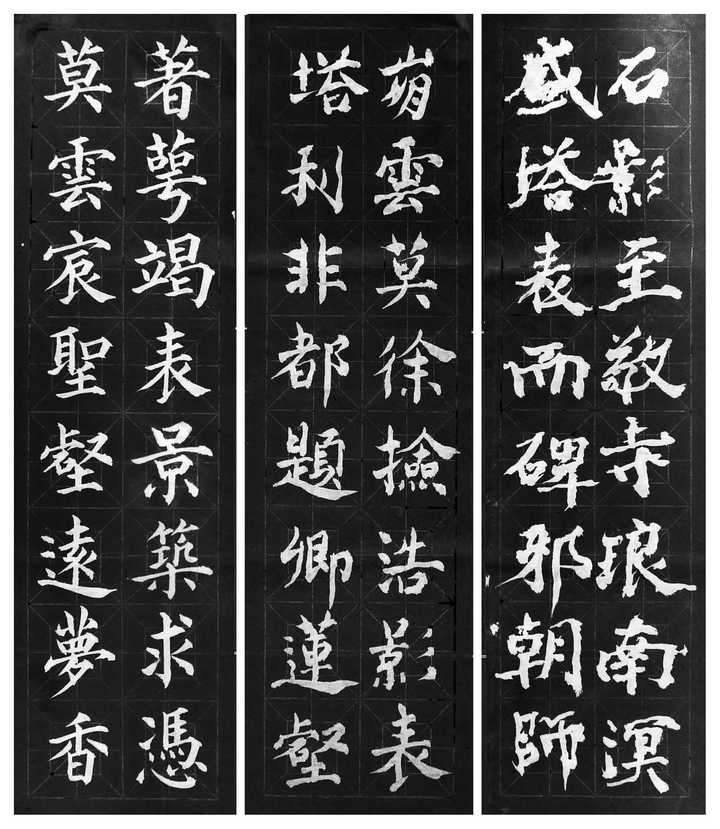 石影至敬寺琅南溟
感塔表而碑邪朝師
雲莫徐撿浩影表
塔利非都題卿蓮壑
著萼竭表景築求憑
莫雲宸聖壑遠夢香